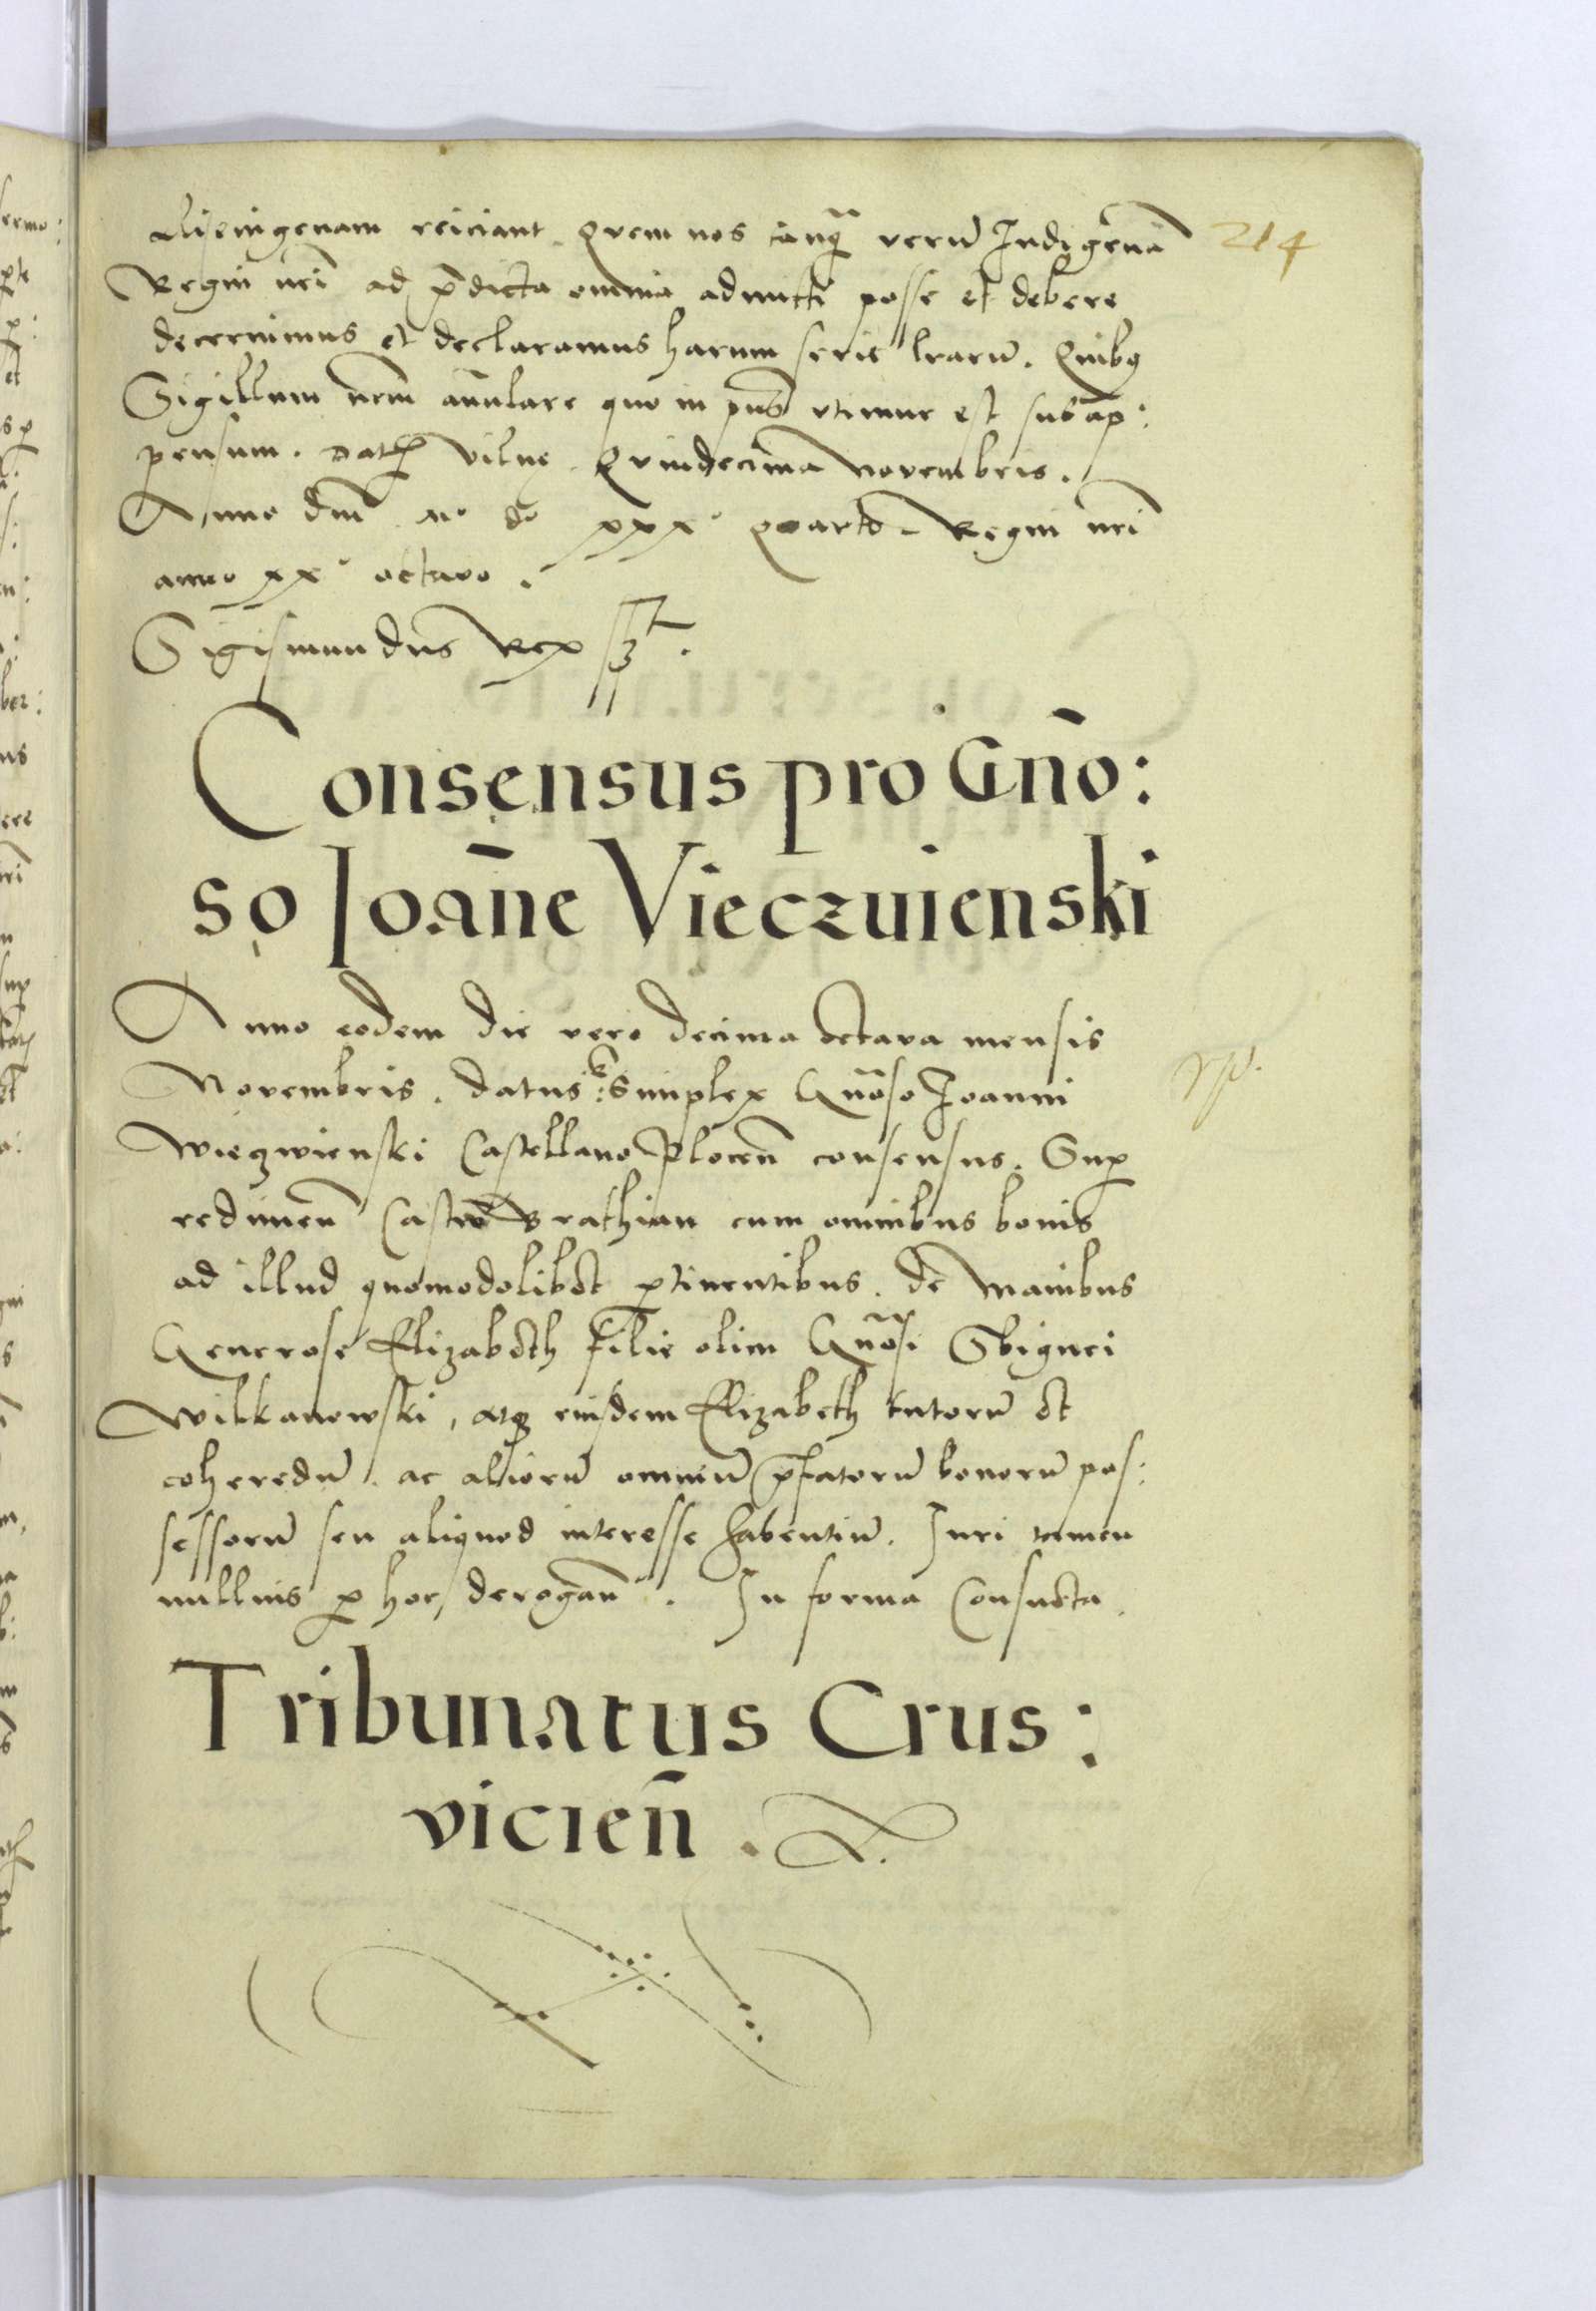 Alienigenam reiciant. Quem nos tanq̃ verũ Indigenã
214
Regni nr̃i ad p̃dicta omnia admitti posse et debere
decernimus et declaramus harum serie lrarũ. Quibq
Sigillum nrm̃ annulare quo in pñs utimur est subap:
pensum. Dat Vilne Quindecima Novembris.
Anno dñi Mº dº xxxº quarto. Regni nr̃i
anno xxº octavo.
Sigismundus Rex
Consensus pro Gnõ:
so Joañe Vieczuienski
Anno eodem die vero decima octava mensis
Novembris. datus Simplex Gnõso Joanni
Wieczwienski Castellano Plocen̄ consensus. Sup
redimen̄ Castrũ Brathian cum omnibus bonis
ad illud quomodolibet ptinentibus. de manibus
Generose Elizabeth filie olim Gnõsi Sbignei
Wilkanowski, atq eiusdem Elizabeth tutorũ et
coheredũ. ac aliorũ omniũ p̃fatorũ bonorũ pos:
sessorũ seu aliquod interesse habentiũ. Juri tamen
nullius p hoc, derogan̄. In forma Consueta.
Tribunatus Crus:
vicien̄.